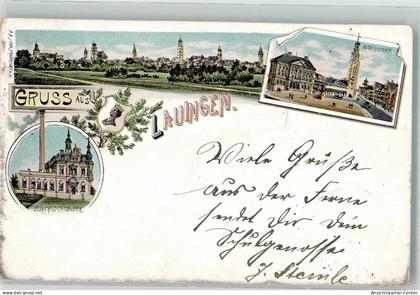 GRUSS AUS
LAUINGEN.
Viele Grüße
aus der Ferne
sendet dir dein
Schulgenosse
J. Steinle
Ansichtskarten-Center